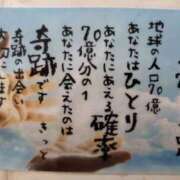 地球の人口70億
あなたはひとり
あなたにあえる確率
70億分の1
あなたに会えたのは
奇跡です きっと
奇跡の出会い
大切にします